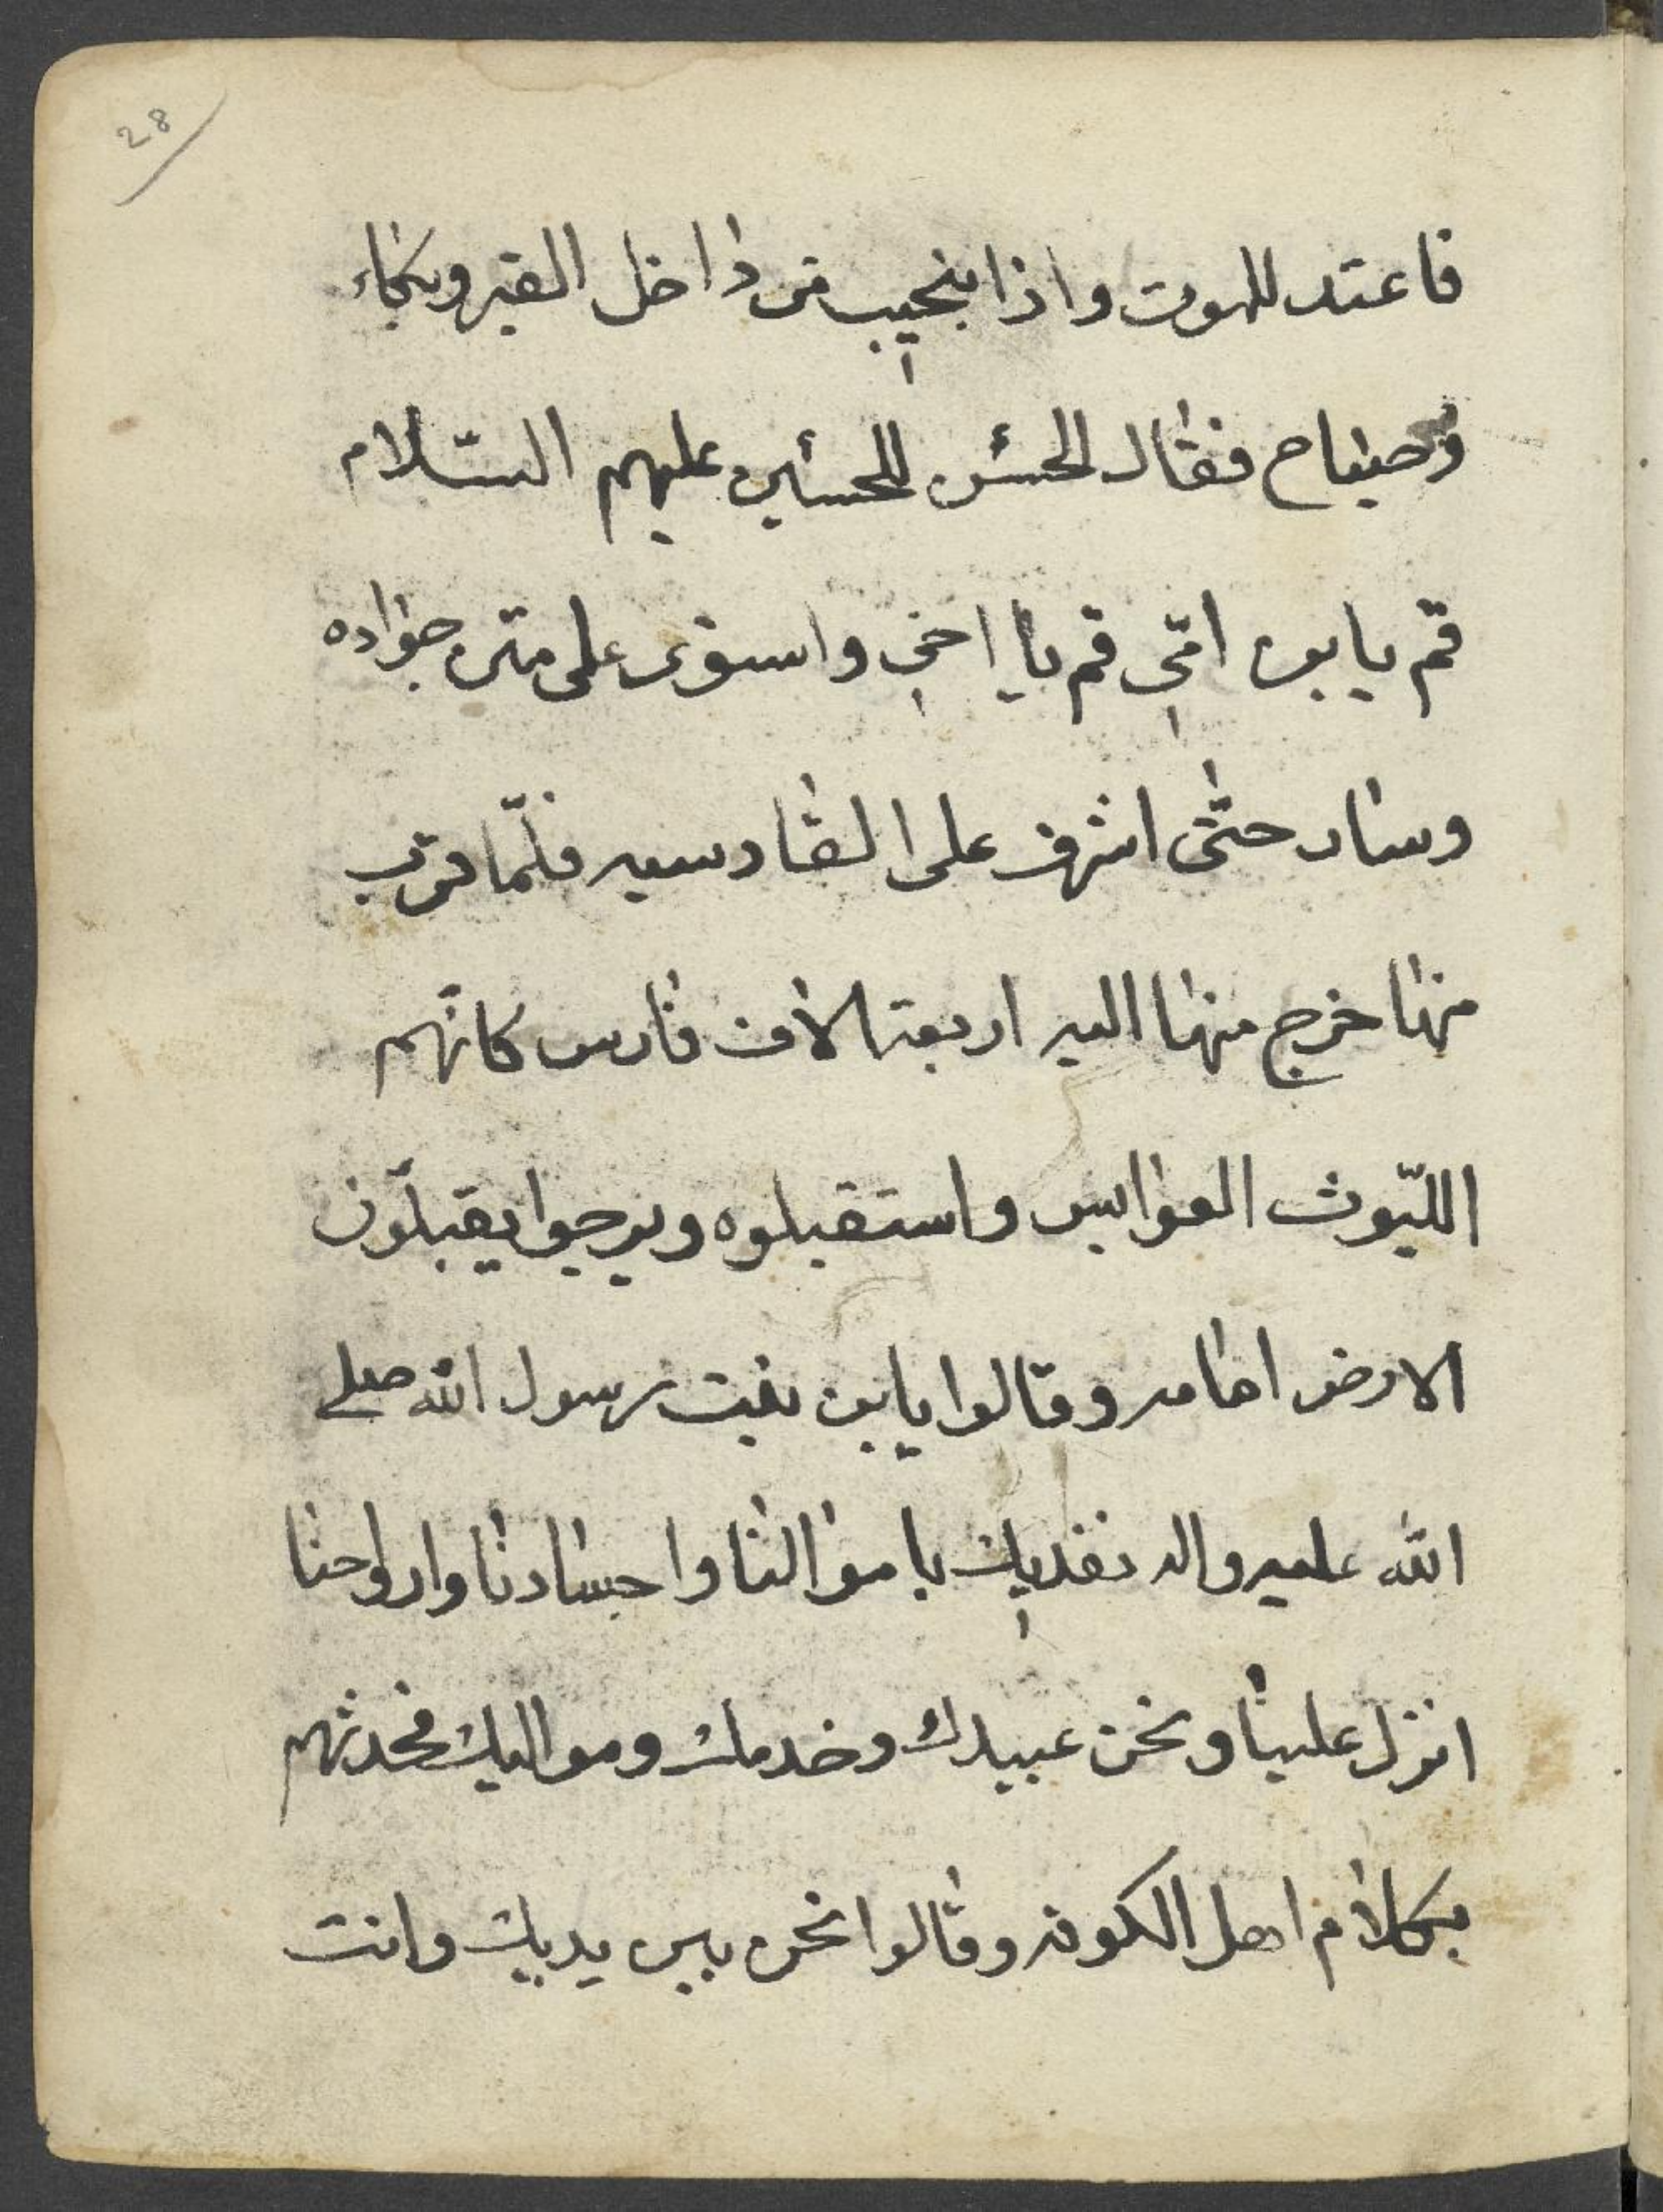 28
فاعتد للموت واذا بنحيب من داخل القبر وبكاء
وصياح فقال الحسن للحسين عليهم السّلام
قم يابن امّي قم يا اخي واستوى على متن جواده
وسار حتّى اشرف على القادسيه فلمّا قرب
منها خرج منها اليه اربعة الاف فارس كانّهم
اللّيوث العوابس واستقبلوه ويرجوا يقبّلون
الارض امامه وقالوا يابن بنت رسول الله صلى
الله عليه واله نفديك باموالنا واجسادنا وارواحنا
انزل علينا ونحن عبيدك وخدمك ومواليك فحدثهم
بكلام اهل الكوفه وقالوا نحن بين يديك وانت